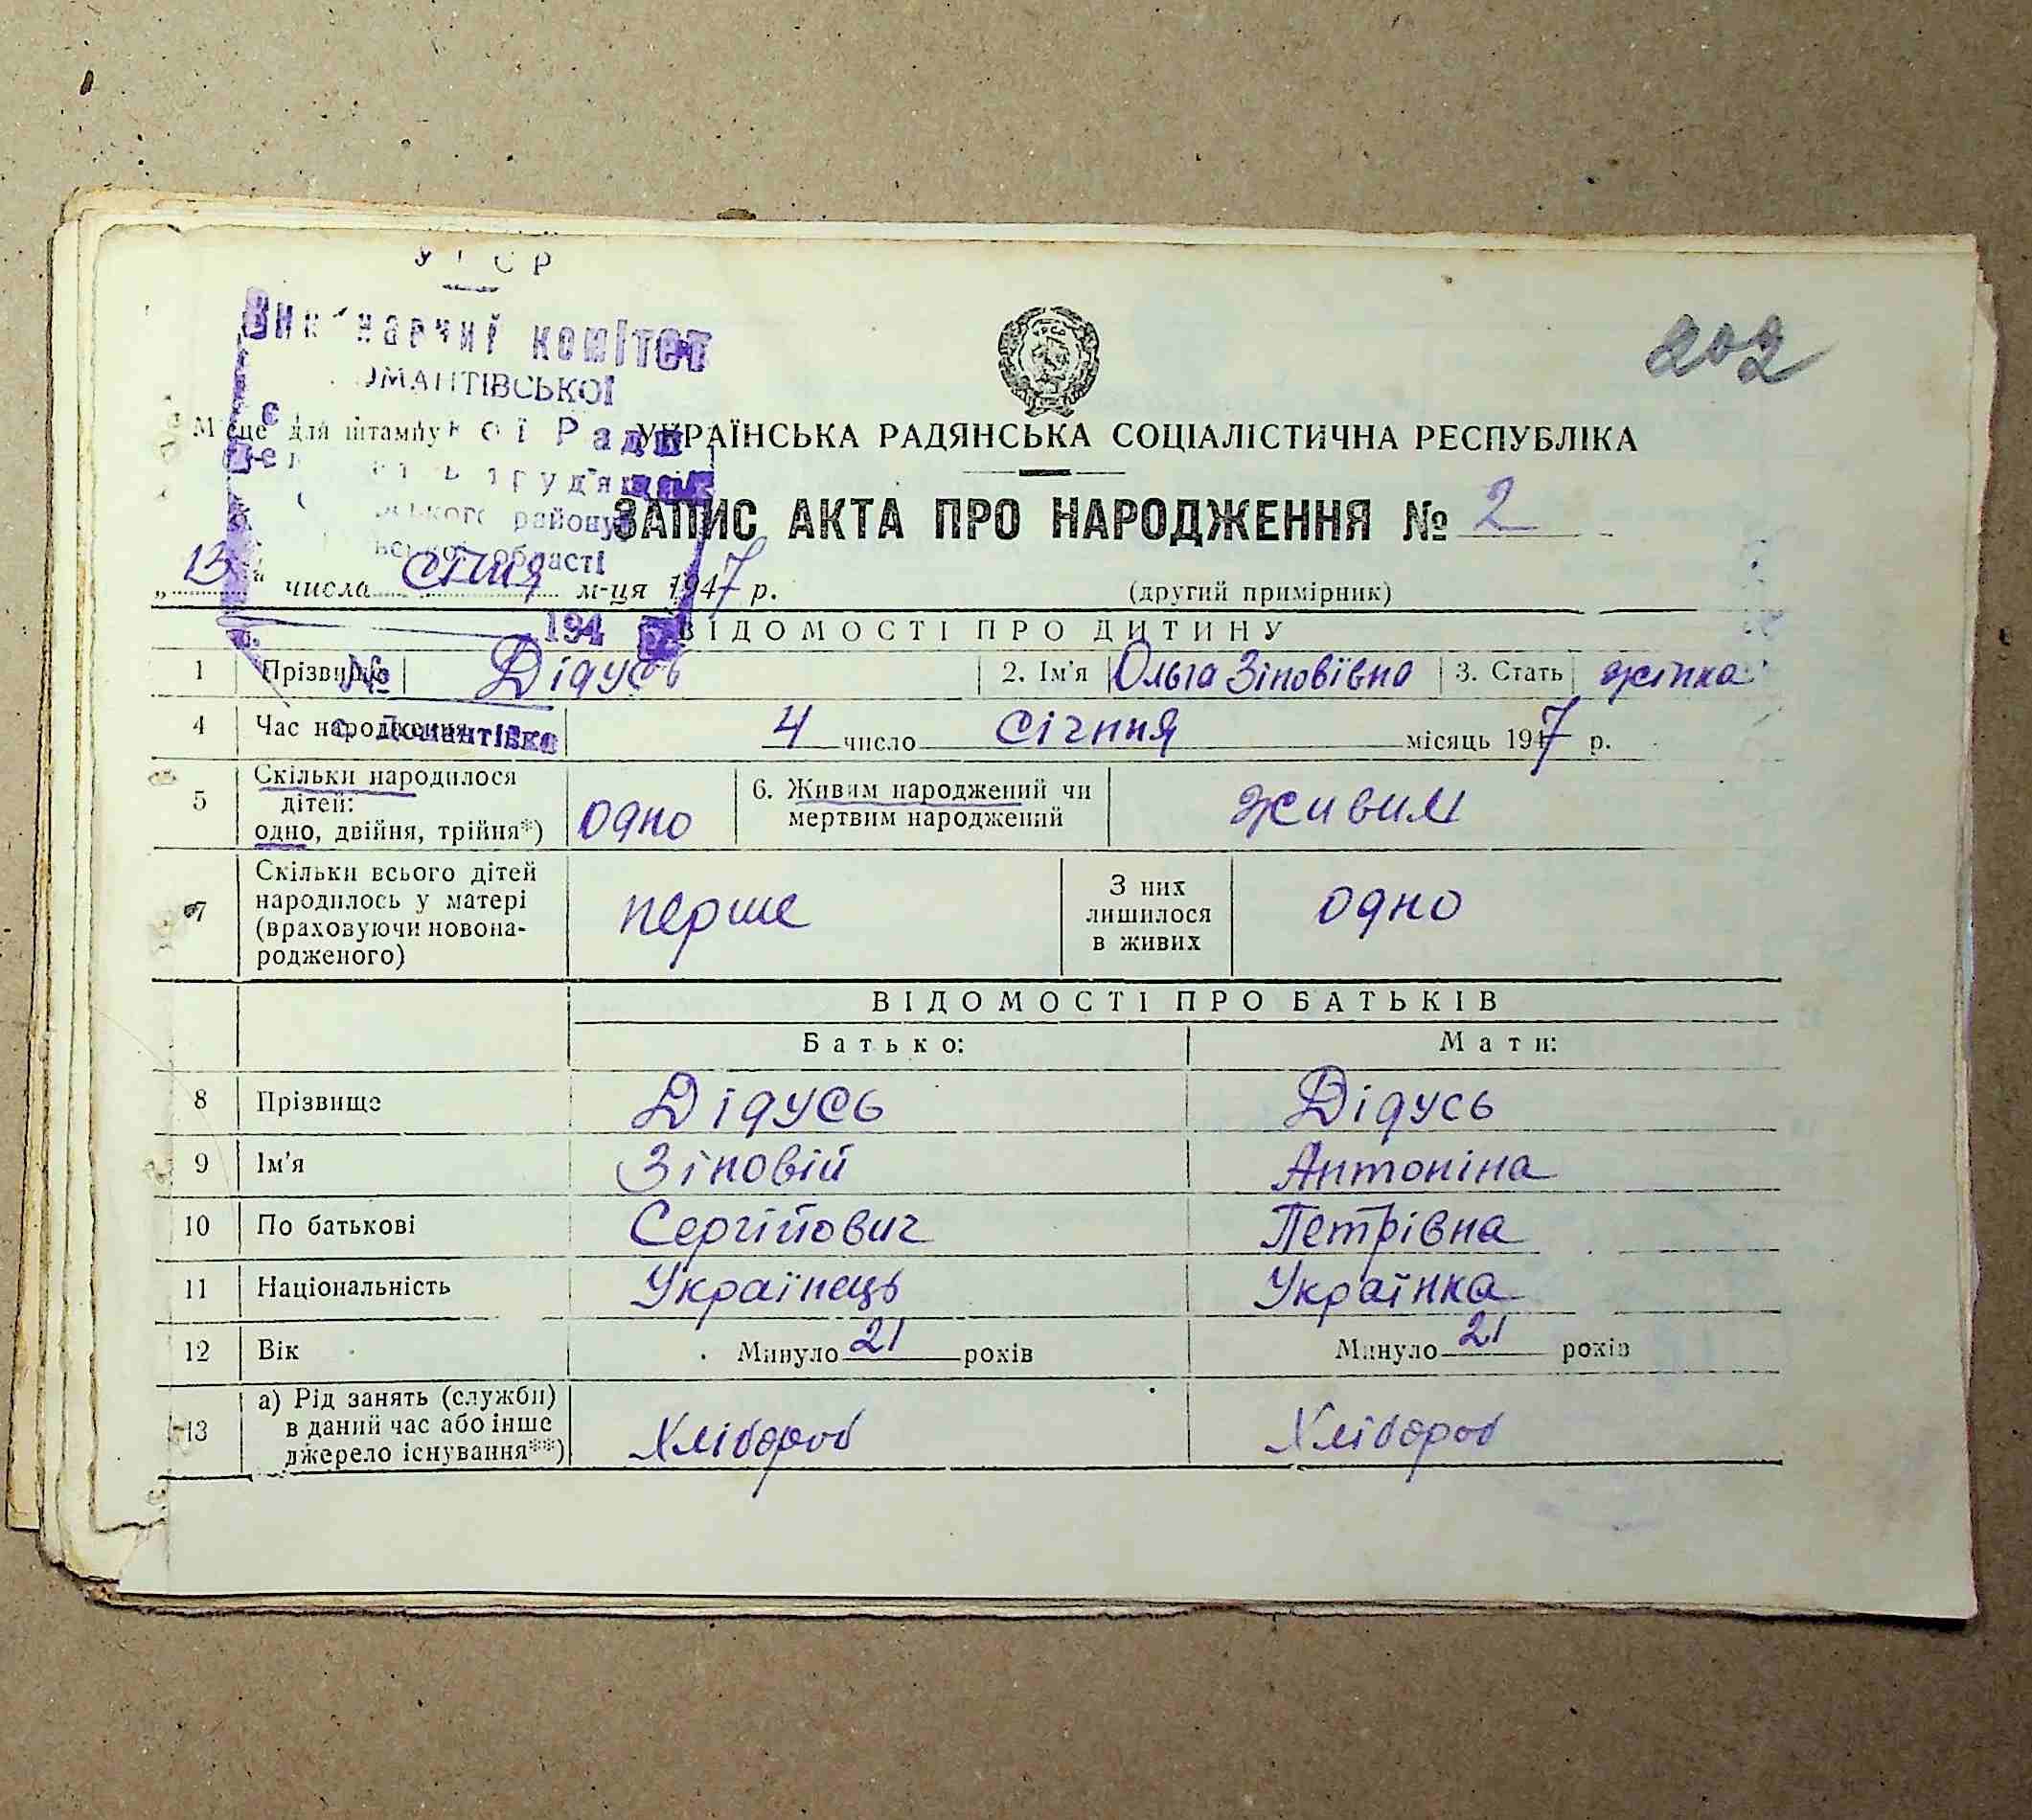 202
комітет
Місце для штампу
УКРАЇНСЬКА РАДЯНСЬКА СОЦІАЛІСТИЧНА РЕСПУБЛІКА
ЗАПИС АКТА ПРО НАРОДЖЕННЯ № 2
району
області
„13" числа січня м-ця 1947 р. (другий примірник)
194
ВІДОМОСТІ ПРО ДИТИНУ
№
1 Прізвище Дідусь 2. Ім'я Ольга Зіновіївна 3. Стать жінка
4 Час народження 4 число січня місяць 1947 р.
с. Домантівка
5 Скільки народилося дітей: одно, двійня, трійня*) одно 6. Живим народжений чи мертвим народжений живим
7 Скільки всього дітей народилось у матері (враховуючи новона-родженого) перше З них лишилося в живих одно
ВІДОМОСТІ ПРО БАТЬКІВ
Батько: Мати:
8 Прізвище Дідусь Дідусь
9 Ім'я Зіновій Антоніна
10 По батькові Сергійович Петрівна
11 Національність Українець Українка
12 Вік Минуло 21 років Минуло 21 років
13 а) Рід занять (служби) в даний час або інше джерело існування**) Хлібороб Хлібороб